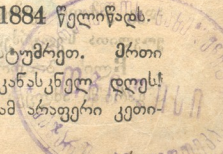 1884 წელიწადს.
სტუმრეთ. ერთი
კანასკნელ დღეს!
ამ არაფერი კეთი-